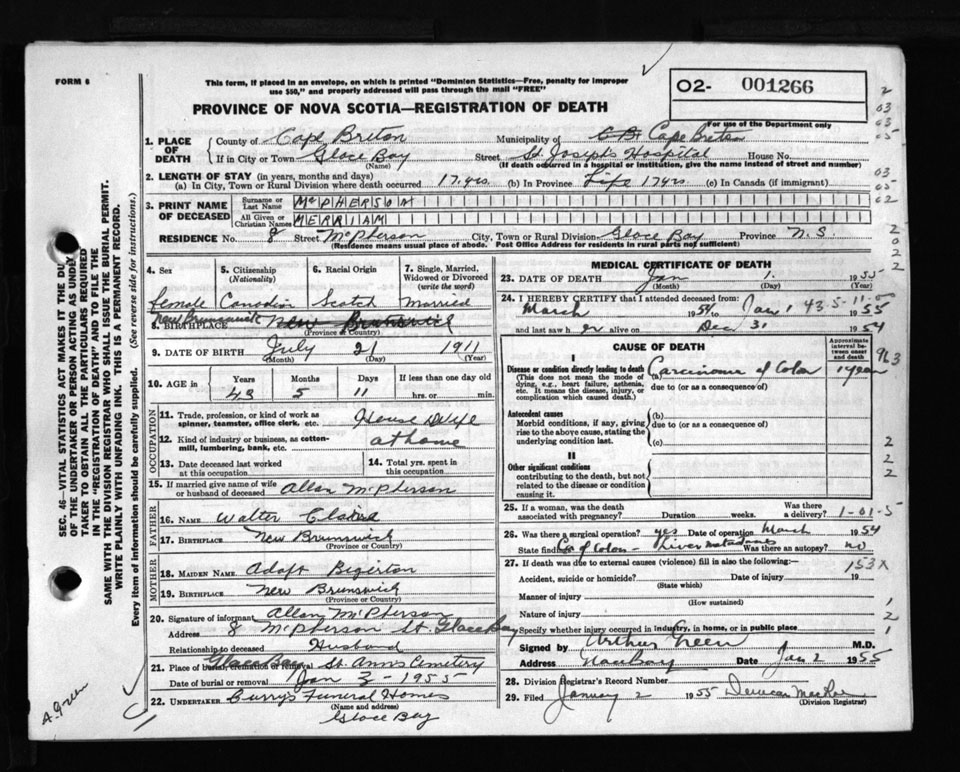 FORM 6
This form, if placed in an envelope, on which is printed "Dominion Statistics—Free, penalty for improper
use $50," and properly addressed will pass through the mail "FREE"
PROVINCE OF NOVA SCOTIA—REGISTRATION OF DEATH
02- 001266
For use of the Department only
1. PLACE OF DEATH
County of Cape Breton Municipality of Cape Breton
If in City or Town Glace Bay Street St. Joseph's Hospital House No.
(Name) (If death occurred in a hospital or institution, give the name instead of street and number)
2. LENGTH OF STAY (in years, months and days)
(a) In City, Town or Rural Division where death occurred 17 yrs. (b) In Province Life 17 yrs (c) In Canada (if immigrant)
3. PRINT NAME OF DECEASED
Surname or Last Name McPHERSON
All Given or Christian Names MERRIAM
RESIDENCE No. 8 Street McPherson City, Town or Rural Division Glace Bay Province N.S.
(Residence means usual place of abode. Post Office Address for residents in rural parts not sufficient)
4. Sex 5. Citizenship (Nationality) 6. Racial Origin 7. Single, Married, Widowed or Divorced (write the word)
female Canadian Scotch Married
New Brunswick
8. BIRTHPLACE New Brunswick
(Province or Country)
9. DATE OF BIRTH July 21 1911
(Month) (Day) (Year)
10. AGE in Years Months Days If less than one day old
43 5 11 hrs. or min.
OCCUPATION
11. Trade, profession, or kind of work as spinner, teamster, office clerk, etc. House Wife
12. Kind of industry or business, as cotton-mill, lumbering, bank, etc. at home
13. Date deceased last worked at this occupation
14. Total yrs. spent in this occupation
15. If married give name of wife or husband of deceased Allan McPherson
FATHER
16. NAME Walter
17. BIRTHPLACE New Brunswick
(Province or Country)
MOTHER
18. MAIDEN NAME
19. BIRTHPLACE New Brunswick
(Province or Country)
20. Signature of informant Allan McPherson
Address 8 McPherson St. Glace Bay
Relationship to deceased Husband
Glace Bay
21. Place of burial, cremation or removal St. Anns Cemetery
Date of burial or removal Jan 3 - 1955
22. UNDERTAKER Curry's Funeral Homes
(Name and address)
Glace Bay
MEDICAL CERTIFICATE OF DEATH
23. DATE OF DEATH Jan 1. 1955
(Month) (Day)
24. I HEREBY CERTIFY that I attended deceased from:
March 1954 to Jan 1 1955
43-5-11-0
and last saw her alive on Dec 31 1954
CAUSE OF DEATH
Approximate interval between onset and death
I
Disease or condition directly leading to death
(This does not mean the mode of dying, e.g., heart failure, asthenia, etc. It means the disease, injury, or complication which caused death.)
(a) Carcinoma of Colon 1 year
due to (or as a consequence of)
963
Antecedent causes
Morbid conditions, if any, giving rise to the above cause, stating the underlying condition last.
(b)
due to (or as a consequence of)
(c)
II
Other significant conditions
contributing to the death, but not related to the disease or condition causing it.
25. If a woman, was the death associated with pregnancy? Duration weeks. Was there a delivery?
1-01-5
26. Was there a surgical operation? yes Date of operation March 1954
State findings Ca of Colon - Liver Was there an autopsy? no
27. If death was due to external causes (violence) fill in also the following:-
153X
Accident, suicide or homicide? Date of injury 19
(State which)
Manner of injury
(How sustained)
Nature of injury
Specify whether injury occurred in industry, in home, or in public place
Signed by Arthur Green M.D.
Address Date Jan 2 1955
28. Division Registrar's Record Number
29. Filed January 2 1955 Duncan MacRae
(Division Registrar)
SEC. 46—VITAL STATISTICS ACT MAKES IT THE DUTY
OF THE UNDERTAKER OR PERSON ACTING AS UNDER-
TAKER TO OBTAIN ALL THE PARTICULARS REQUIRED
IN THE "REGISTRATION OF DEATH" AND TO FILE THE
SAME WITH THE DIVISION REGISTRAR WHO SHALL ISSUE THE BURIAL PERMIT.
WRITE PLAINLY WITH UNFADING INK. THIS IS A PERMANENT RECORD.
Every item of information should be carefully supplied. (See reverse side for instructions.)
A. Green
2
03
03
05
03
05
02
2
0
2
2
2
2
2
2
1
2
1